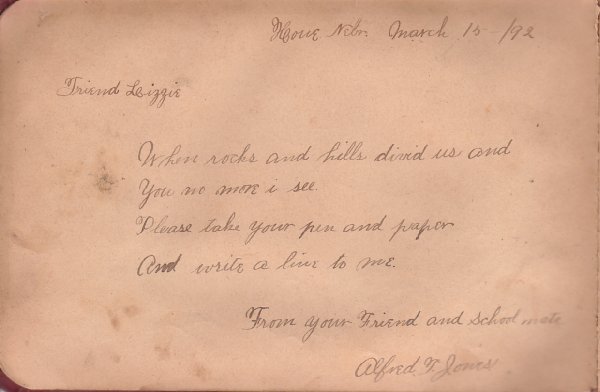 Howe Nebr. March 15 - /92
Friend Lizzie
When rocks and hills divid us and
You no more i see.
Please take your pen and paper
And write a line to me.
From your Friend and school mate
Alfred F. Jones